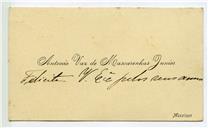 Antonio Vaz de Mascarenhas Junior
Felicita V. Exª pelos seus annos